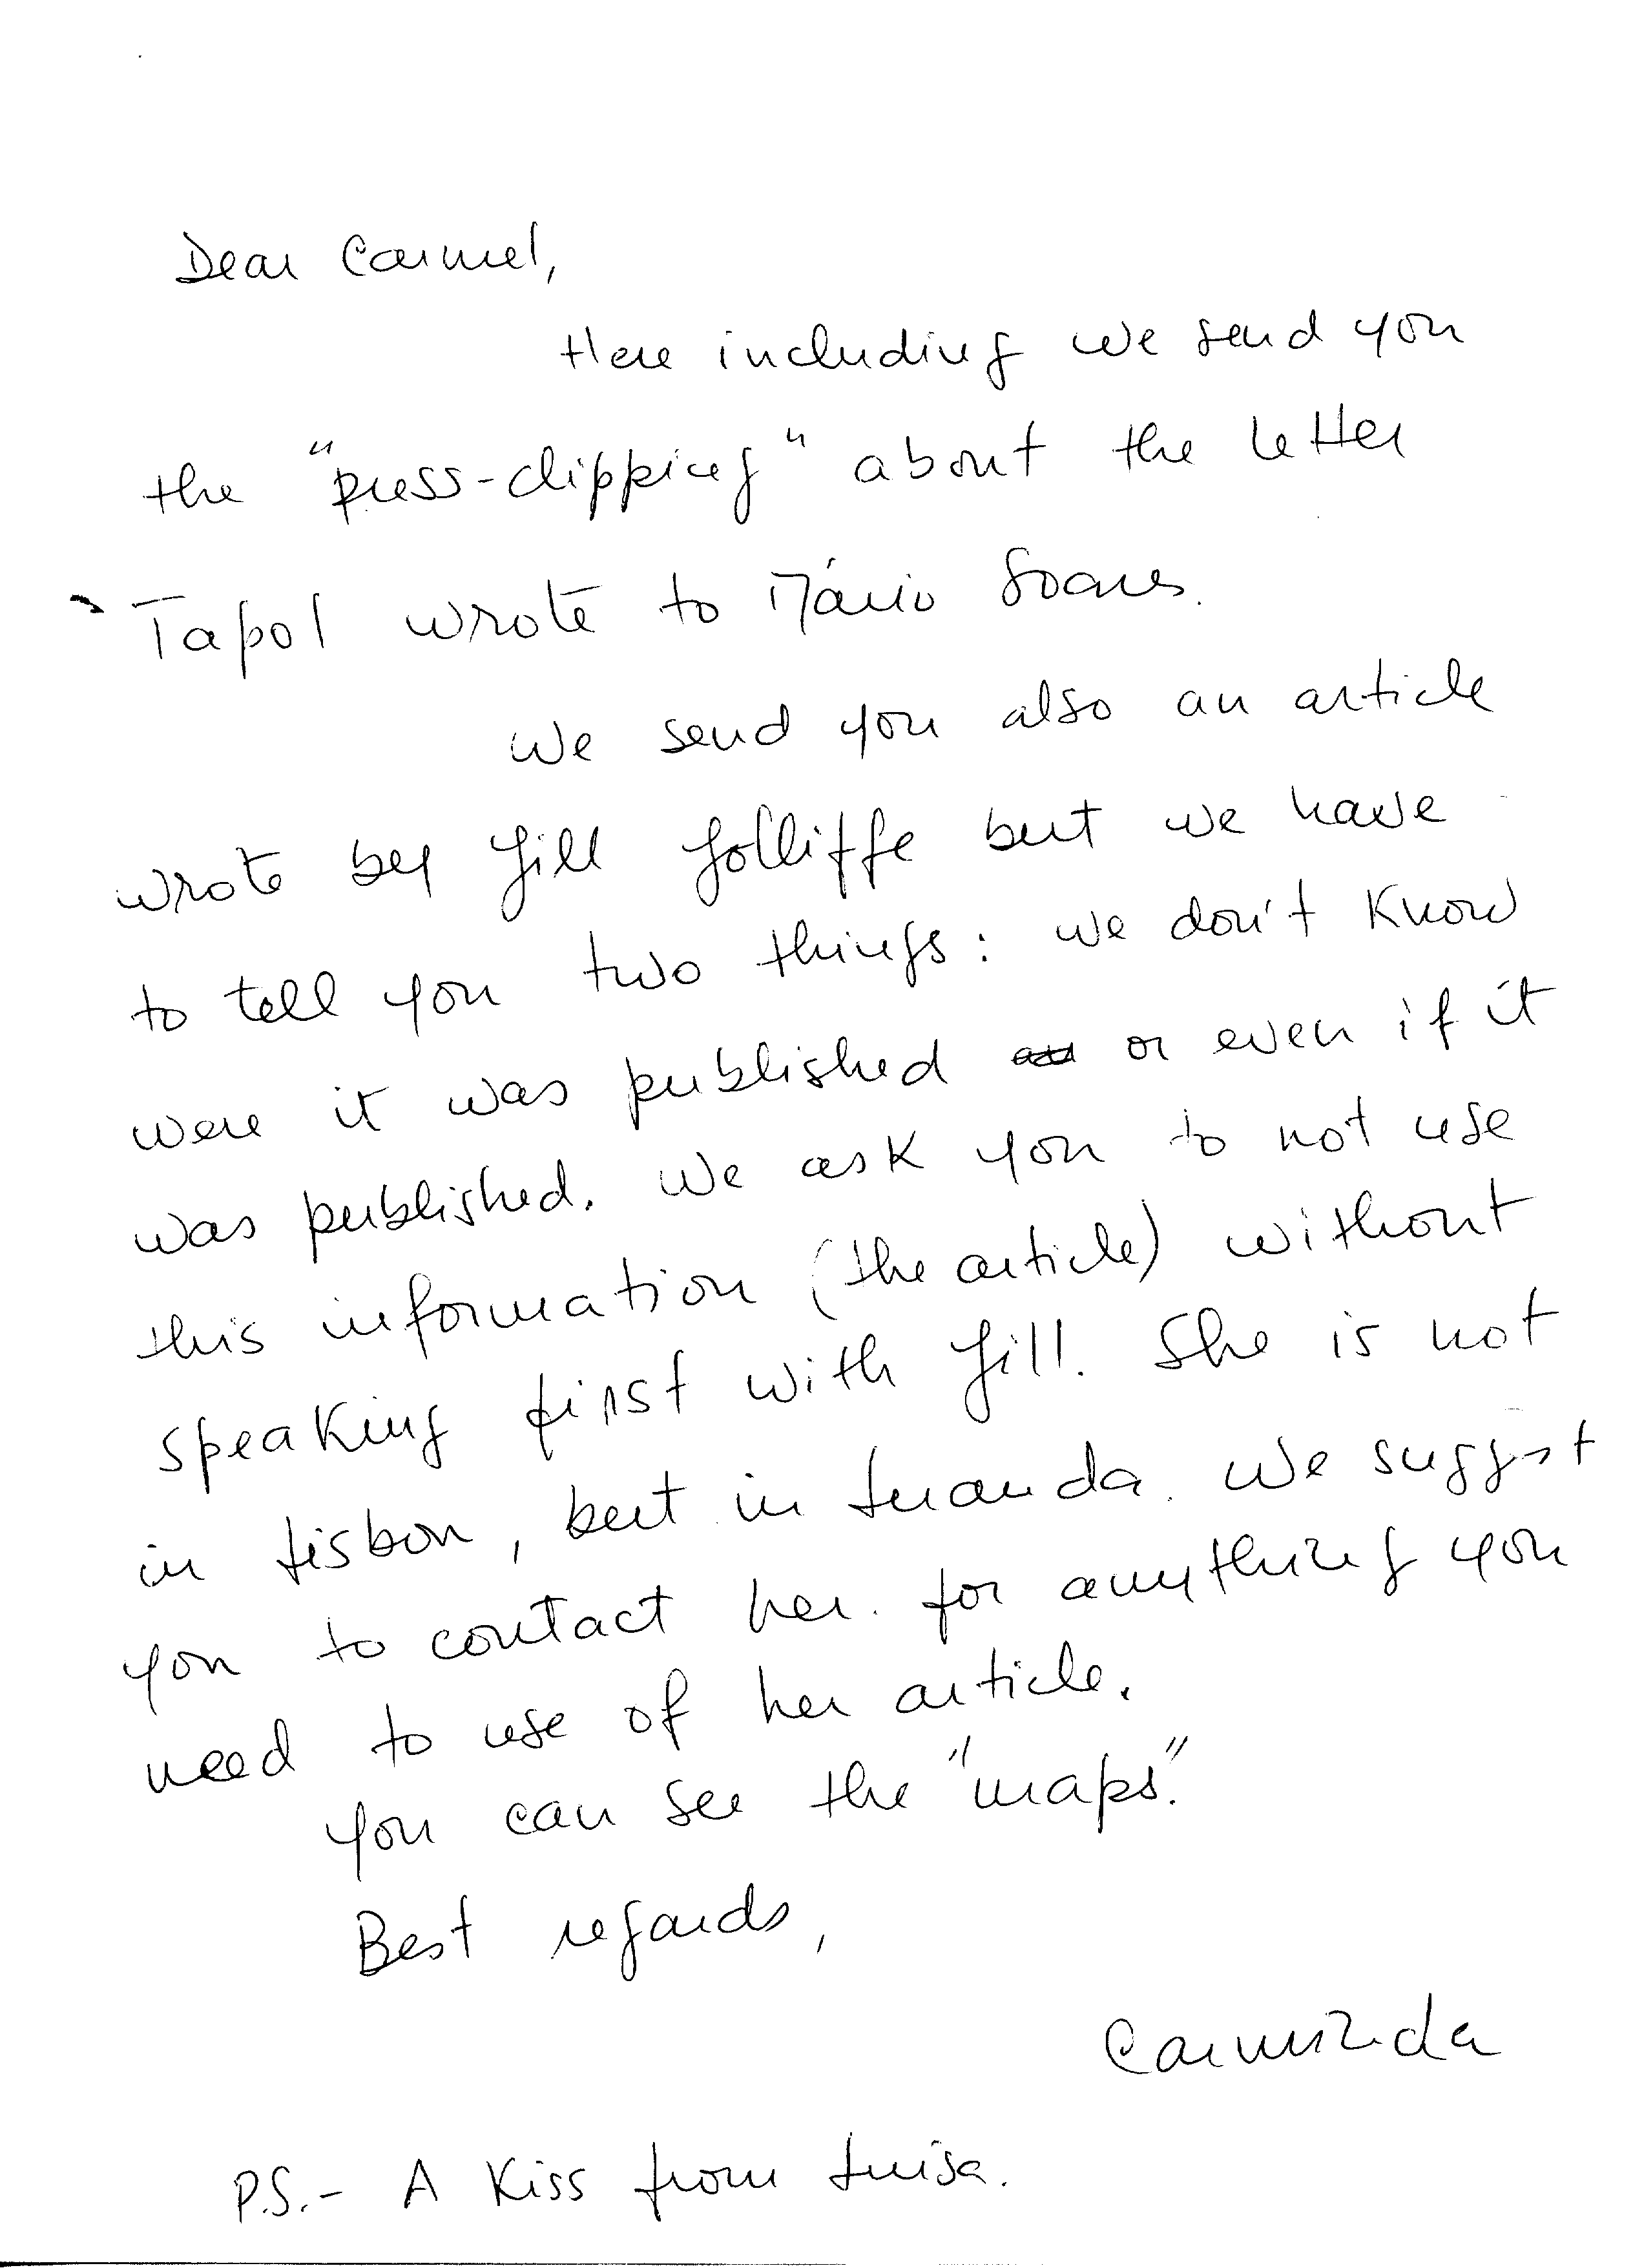 Dear Carmel,
Here including we send you
the "press-clipping" about the letter
Tapol wrote to Mário Soares.
We send you also an article
wrote by Jill Jolliffe but we have
to tell you two things: we don't know
were it was published or even if it
was published. We ask you to not use
this information (the article) without
speaking first with Jill. She is not
in Lisbon, but in Luanda. We suggest
you to contact her for anything you
need to use of her article.
You can see the "maps".
Best regards,
Carminda
P.S.- A Kiss from Luisa.